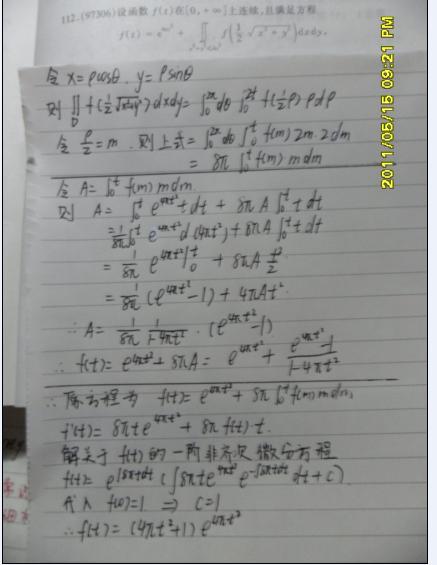 112.(97306)设函数 f(t)在[0,+∞)上连续,且满足方程
f(t) = e^{4πt²} + ∬_{x²+y²≤4t²} f(½√(x²+y²))dxdy,
令 x=ρcosθ, y=ρsinθ
则 ∬_D f(½√(x²+y²))dxdy = ∫₀^{2π}dθ ∫₀^{2t} f(½ρ)ρdρ
令 ρ/2=m, 则上式=∫₀^{2π}dθ ∫₀^t f(m)2m·2dm
= 8π∫₀^t f(m)mdm
令 A=∫₀^t f(m)mdm.
则 A= ∫₀^t e^{4πt²}tdt + 8πA∫₀^t tdt
=1/8π ∫₀^t e^{4πt²}d(4πt²)+8πA∫₀^t tdt
= 1/8π e^{4πt²}|₀^t + 8πA t²/2
= 1/8π (e^{4πt²}-1) + 4πAt².
∴ A= 1/8π 1/(1-4πt²) ·(e^{4πt²}-1)
∴ f(t)=e^{4πt²}+8πA= e^{4πt²}+ (e^{4πt²}-1)/(1-4πt²)
∴ 原方程为 f(t)=e^{4πt²}+8π∫₀^t f(m)mdm,
f'(t)=8πte^{4πt²}+8πf(t)·t.
解关于 f(t)的一阶非齐次微分方程
f(t)= e^{∫8πtdt}(∫8πte^{4πt²}e^{-∫8πtdt}dt+C).
代入 f(0)=1 ⇒ C=1
∴f(t)=(4πt²+1)e^{4πt²}
2011/05/15 09:21 PM